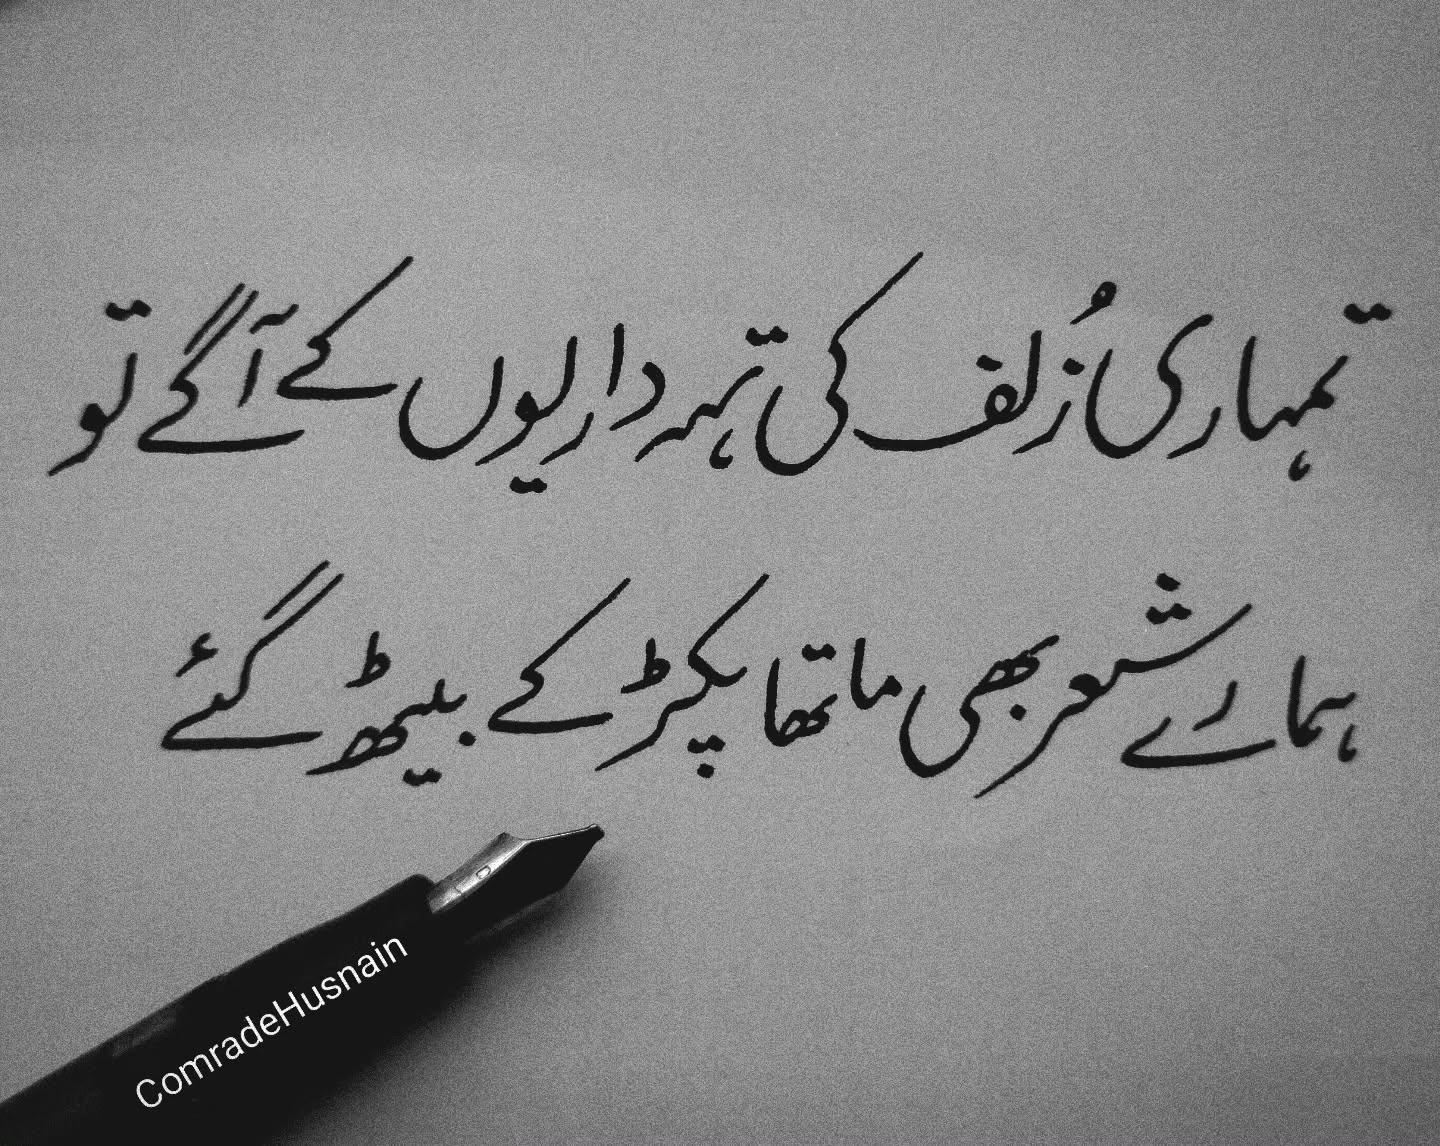 تمہاری زُلف کی تہہ داریوں کے آگے تو
ہمارے شعر بھی ماتھا پکڑ کے بیٹھ گئے
ComradeHusnain